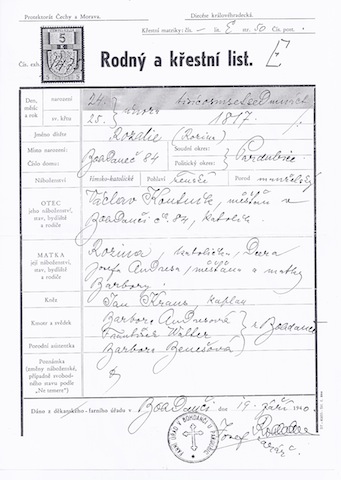 Protektorát Čechy a Morava.
Diecéze královéhradecká.
Křestní matriky čís. — lit. E nr. 50 Čís. post.
5
Čís. exh.
Rodný a křestní list.
Den, měsíc a rok
narození 24.
sv. křtu 25.
února
tisícosmset
1817.
Jméno dítěte
Rozalie (Rosina)
Místo narození
Číslo domu:
Bohdaneč 84
Soudní okres:
Politický okres:
Pardubice
Náboženství
římsko-katolické
Pohlaví
ženské
Porod
manželský
OTEC
jeho náboženství, stav, bydliště a rodiče
Václav Koutník, měšťan z
Bohdanče č. 84, katolík
MATKA
její náboženství, stav, bydliště a rodiče
Rosina, katolička, dcera
Josefa Andresa, měšťana a matky
Barbory.
Kněz
Jan Kraus, kaplan
Kmotr a svědek
Barbora Andresová
František Walter
z Bohdanče
Porodní asistentka
Barbora Benešová
Poznámka
(změny náboženské, případně svobodného stavu podle „Ne temere“)
Dáno z děkanského - farního úřadu v Bohdanči dne 19. září 1940
FARNÍ ÚŘAD V BOHDANČI U PARDUBIC
Josef
farář